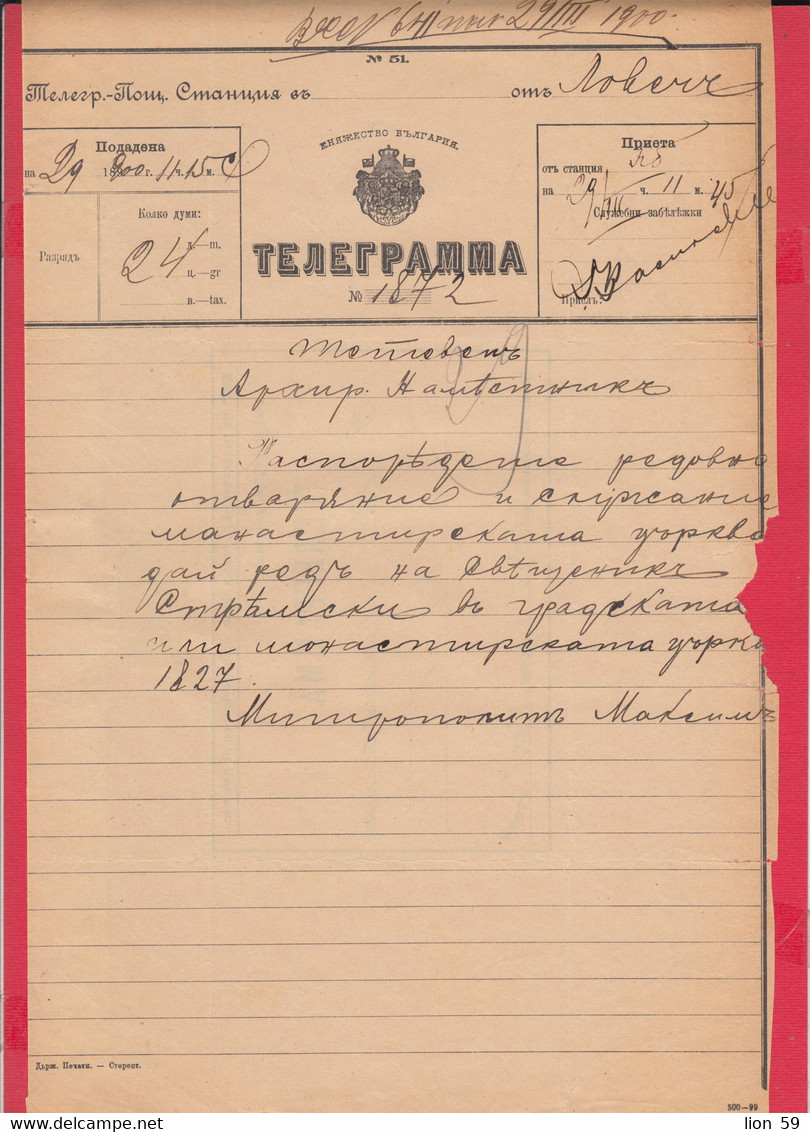 29/III 1900.
№ 51.
Телегр.-Пощ. Станция въ отъ Ловечъ
Подадена
на 29 1900 г. 11 ч. 15 м.
КНЯЖЕСТВО БЪЛГАРИЯ.
Приета
отъ станция
на 29/III ч. 11 м. 45
Служебни забѣлѣжки
Приелъ:
Разрядъ
Колко думи:
24
д.—m.
ц.—gr
в.—tax.
ТЕЛЕГРАММА
№ 1872
Тетевенъ
Архиер. Намѣстникъ
29
Распорѣдете редовно
отваряние и служание
манастирската църква
дай редъ на Свѣщеникъ
Стрѣмски въ градската
или монастирската църква
1827.
Митрополитъ Максимъ
Държ. Печатн. — Стереот.
500—99
lion 59